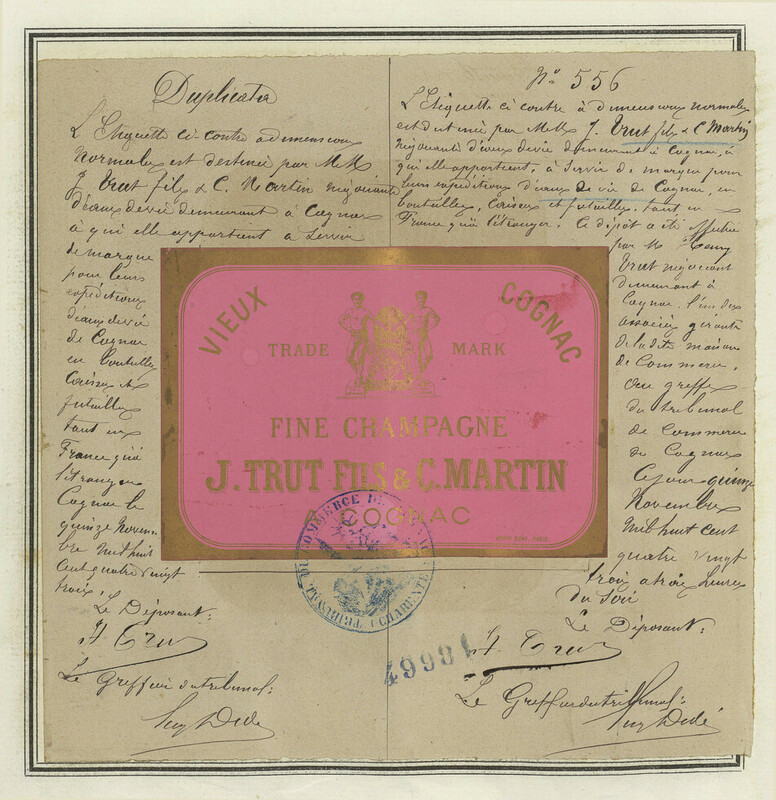 Duplicata
L'Etiquette ci-contre à dimensions
normales est destinée par MM
J. Trut fils & C. Martin négociants
d'eaux de vie demeurant à Cognac
à qui elle appartient a servir
de marque
pour leurs
expéditions
d'eaux de vie
de Cognac
en bouteilles
caisses et
futailles
tant en
France qu'à
l'étranger
Cognac le
quinze Novem
bre Mil huit
cent quatre vingt
trois.
Le Déposant:
Trut
Le Greffier du tribunal:
No 556
L'Etiquette ci contre à dimensions normales
est destinée par MM J. Trut fils & C Martin
négociants d'eaux de vie demeurant à Cognac, à
qui elle appartient, à servir de marque pour
leurs expéditions d'eaux de vie de Cognac, en
bouteilles, caisses et futailles, tant en
France qu'à l'étranger. Ce dépôt a été effectué
par M. Henry
Trut négociant
demeurant à
Cognac, l'un des
associés gérants
de la dite maison
de Commerce,
au greffe
du tribunal
de Commerce
de Cognac
Ce jour quinze
Novembre
Mil huit cent
quatre vingt
trois a trois heures
du soir
Le Déposant:
Trut
Le Greffier du tribunal:
VIEUX COGNAC
TRADE MARK
FINE CHAMPAGNE
J. TRUT FILS & C. MARTIN
COGNAC
TRIBUNAL DE COMMERCE DE COGNAC
CHARENTE
49981